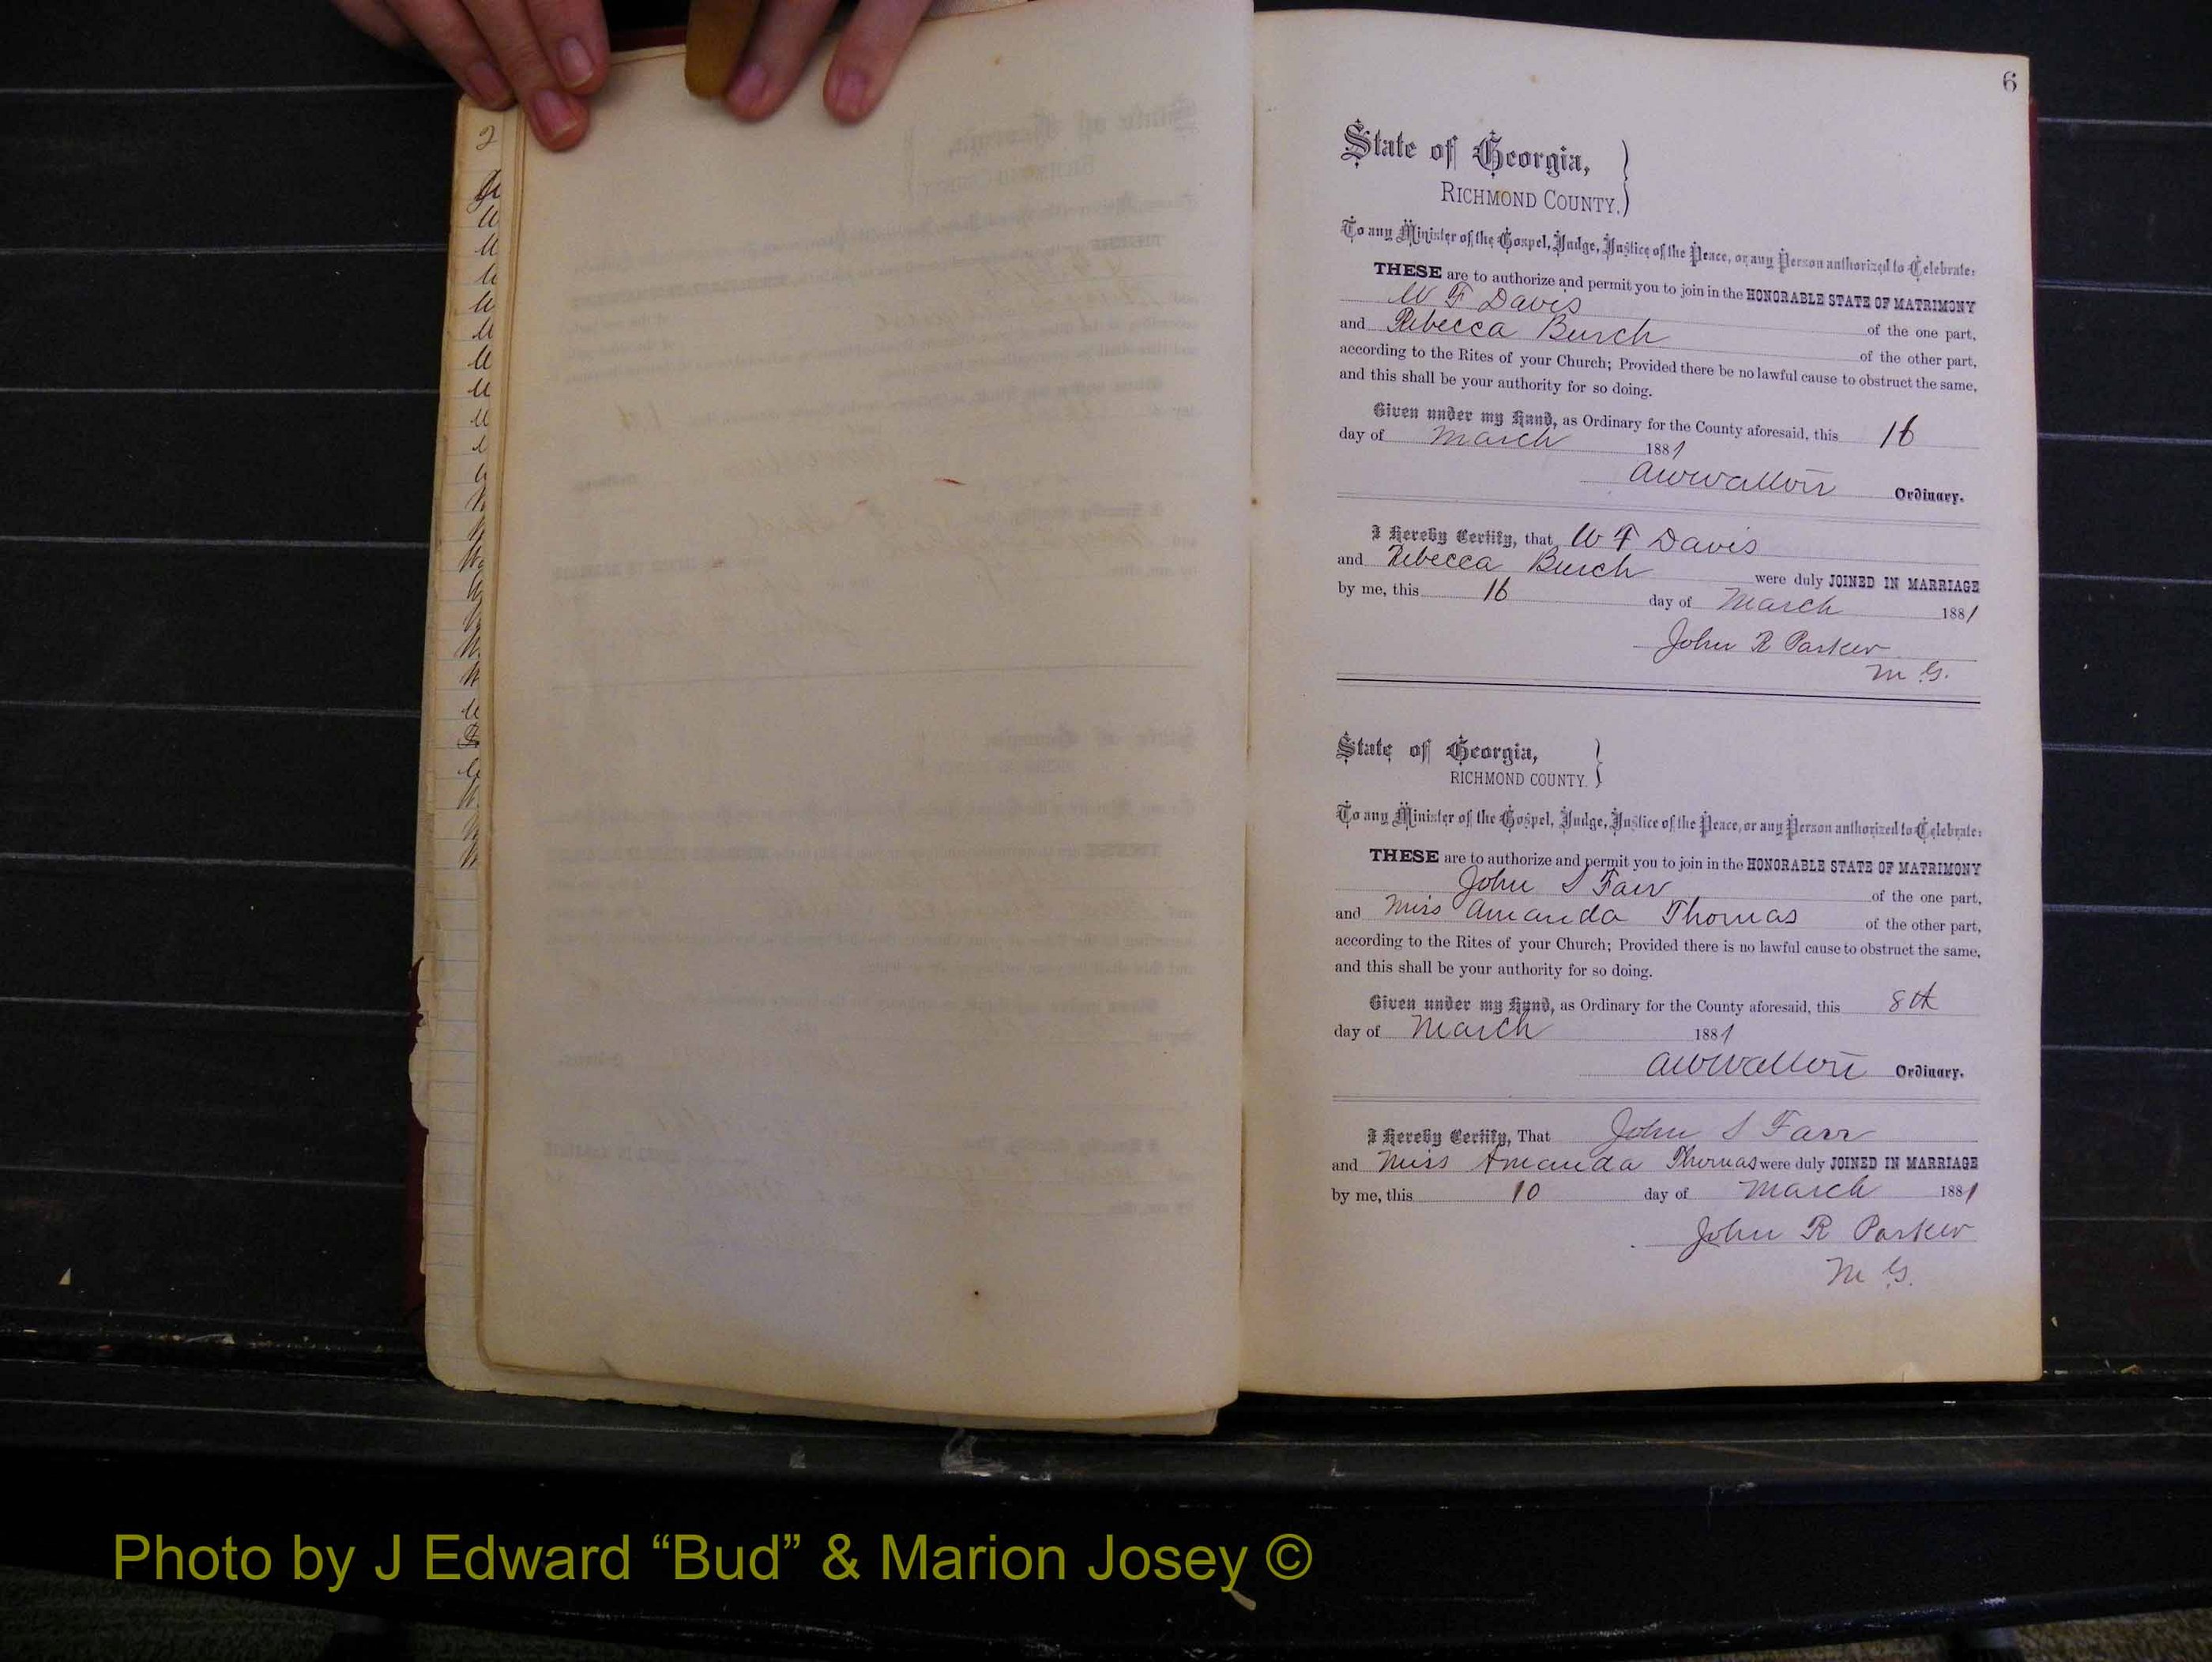 2
6
State of Georgia,
RICHMOND COUNTY.
To any Minister of the Gospel, Judge, Justice of the Peace, or any Person authorized to Celebrate:
THESE are to authorize and permit you to join in the HONORABLE STATE OF MATRIMONY
W F Davis of the one part,
and Rebecca Burch of the other part,
according to the Rites of your Church; Provided there be no lawful cause to obstruct the same,
and this shall be your authority for so doing.
Given under my Hand, as Ordinary for the County aforesaid, this 16
day of March 1881
AWWalton Ordinary.
I Hereby Certify, that W F Davis
and Rebecca Burch were duly JOINED IN MARRIAGE
by me, this 16 day of March 1881
John R Parker
M G.
State of Georgia,
RICHMOND COUNTY.
To any Minister of the Gospel, Judge, Justice of the Peace, or any Person authorized to Celebrate:
THESE are to authorize and permit you to join in the HONORABLE STATE OF MATRIMONY
John S Farr of the one part,
and Miss Amanda Thomas of the other part,
according to the Rites of your Church; Provided there is no lawful cause to obstruct the same,
and this shall be your authority for so doing.
Given under my Hand, as Ordinary for the County aforesaid, this 8th
day of March 1881
AWWalton Ordinary.
I Hereby Certify, That John S Farr
and Miss Amanda Thomas were duly JOINED IN MARRIAGE
by me, this 10 day of March 1881
John R Parker
M G.
Photo by J Edward “Bud” & Marion Josey ©